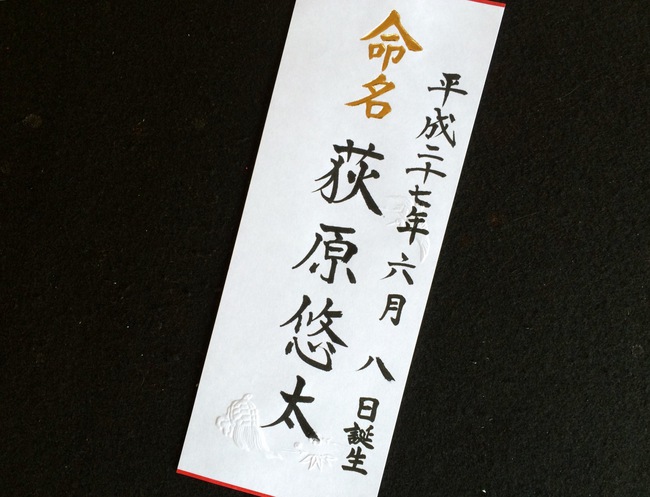 平成二十七年六月八日誕生
命名
荻原悠太